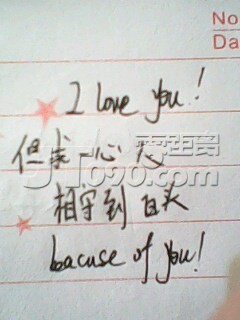 No
Da
I love you!
但求一心人
相守到白头
bacuse of you!